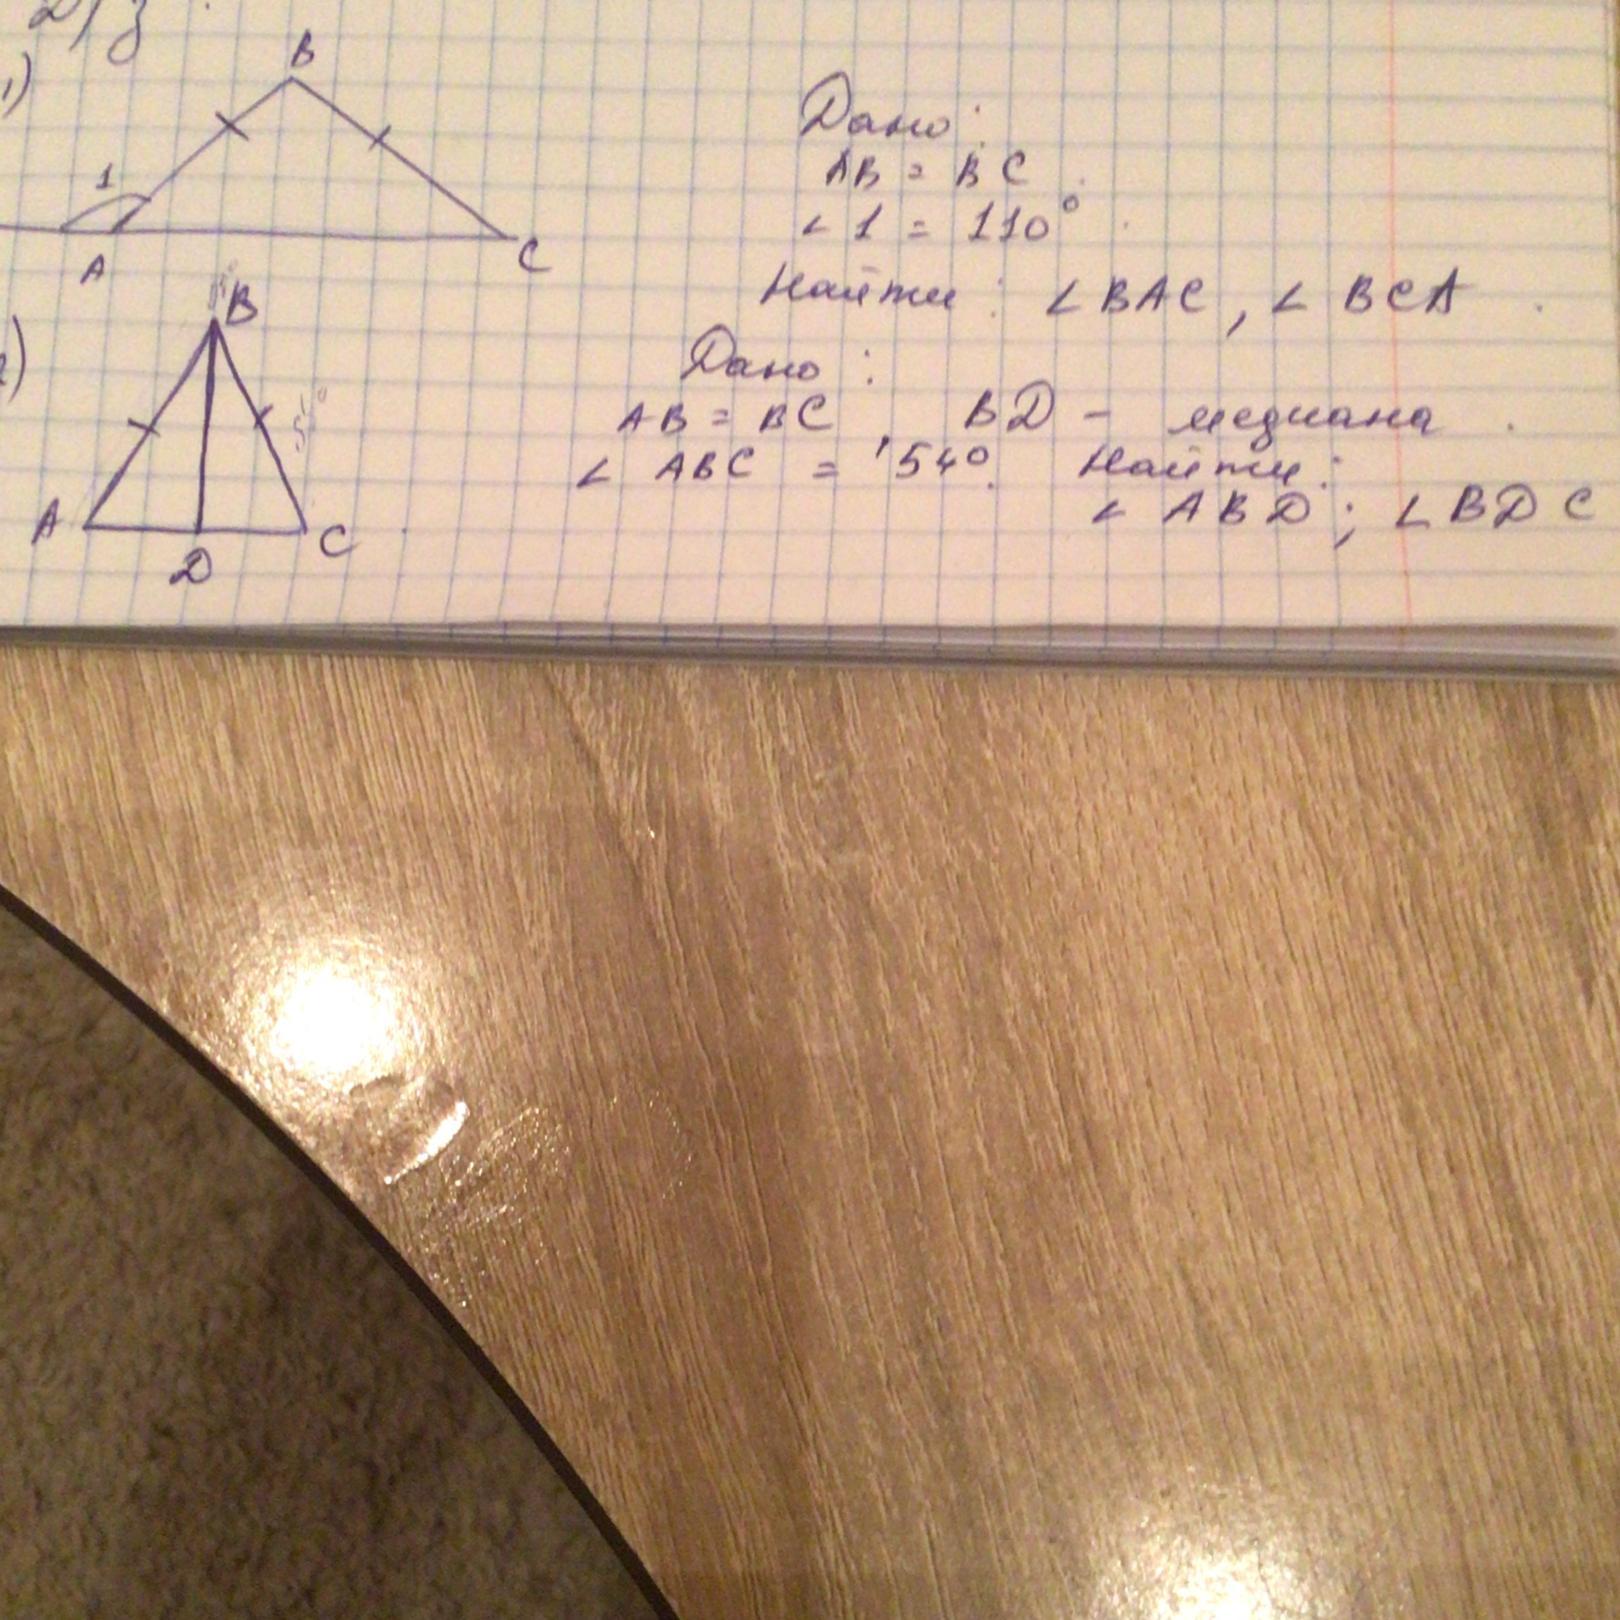 Д/з
1)
B
1
A
C
Дано:
AB = BC
∠1 = 110°
Найти: ∠BAC, ∠BCA
2)
B
A
D
C
Дано:
AB = BC, BD - медиана
∠ABC = 54° Найти:
∠ABD; ∠BDC